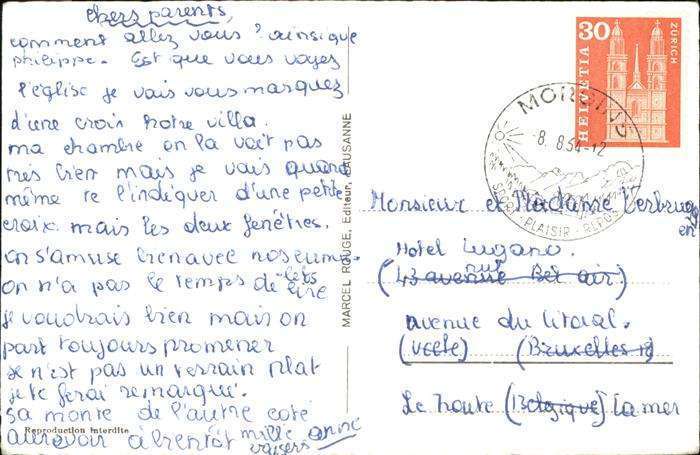 chers parents,
comment allez vous? ainsi que
philippe. Est que vous voyez
l'église je vais vous marquez
d'une croix notre villa.
ma chambre on la voit pas
très bien mais je vais quand
même te l'indiquer d'une petite
croix. mais les deux fenêtres.
on s'amuse bien avec nos
on n'a pas le temps de lire
je voudrais bien mais on
part toujours promener
se n'est pas un terrain plat
je te ferai remarqué.
sa monte de l'autre coté
aurevoir à bientôt mille baisers anne
Reproduction interdite
MARCEL ROUGE, Editeur, LAUSANNE
30
HELVETIA
ZÜRICH
MORGINS
-8. 8.64-12
SPORT - PLAISIR - REPOS
Monsieur et Madame Verbrug
en
Hotel Lugano.
(43 avenue rue Bel air)
avenue du litoral.
(Uccle) (Bruxelles 18)
Le Zoute (Belgique) (a mer